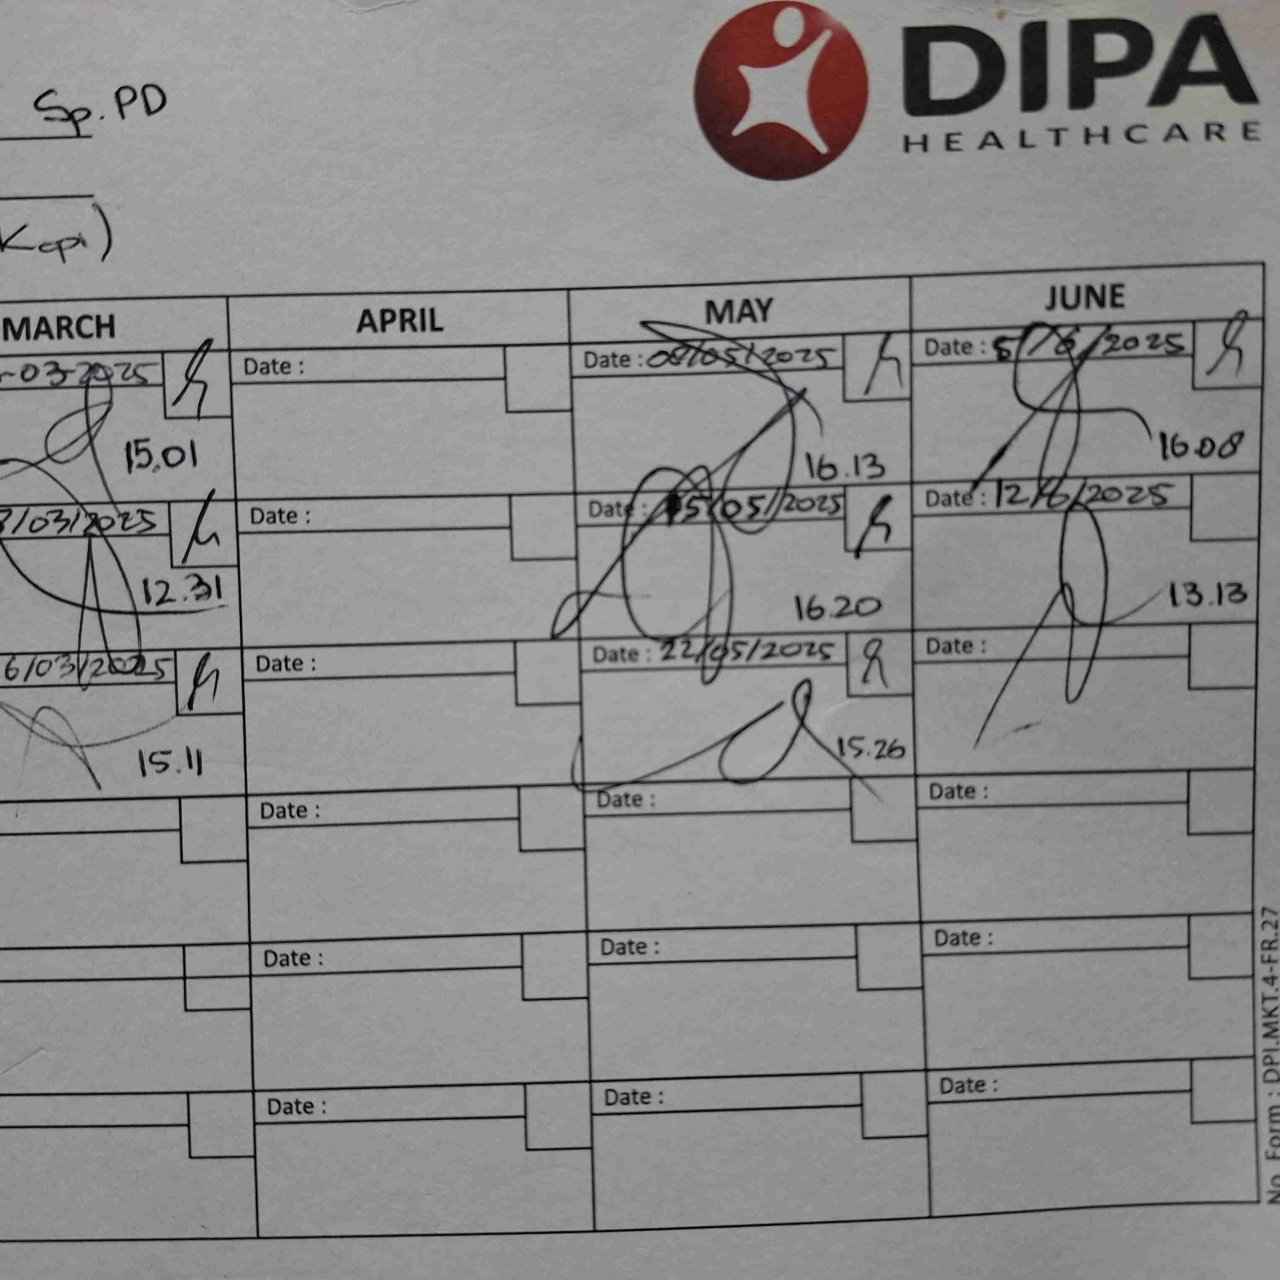 DIPA
HEALTHCARE
Sp.PD
Kopi)
MARCH APRIL MAY JUNE
-03-2025 Date : Date : 08/05/2025 Date : 5/6/2025
15.01 16.13 16.08
/03/2025 Date : Date : 15/05/2025 Date : 12/6/2025
12.31 16.20 13.13
6/03/2025 Date : Date : 22/05/2025 Date :
15.11 15.26
Date : Date : Date :
Date : Date : Date :
Date : Date : Date :
No. Form : DPI.MKT.4-FR.27